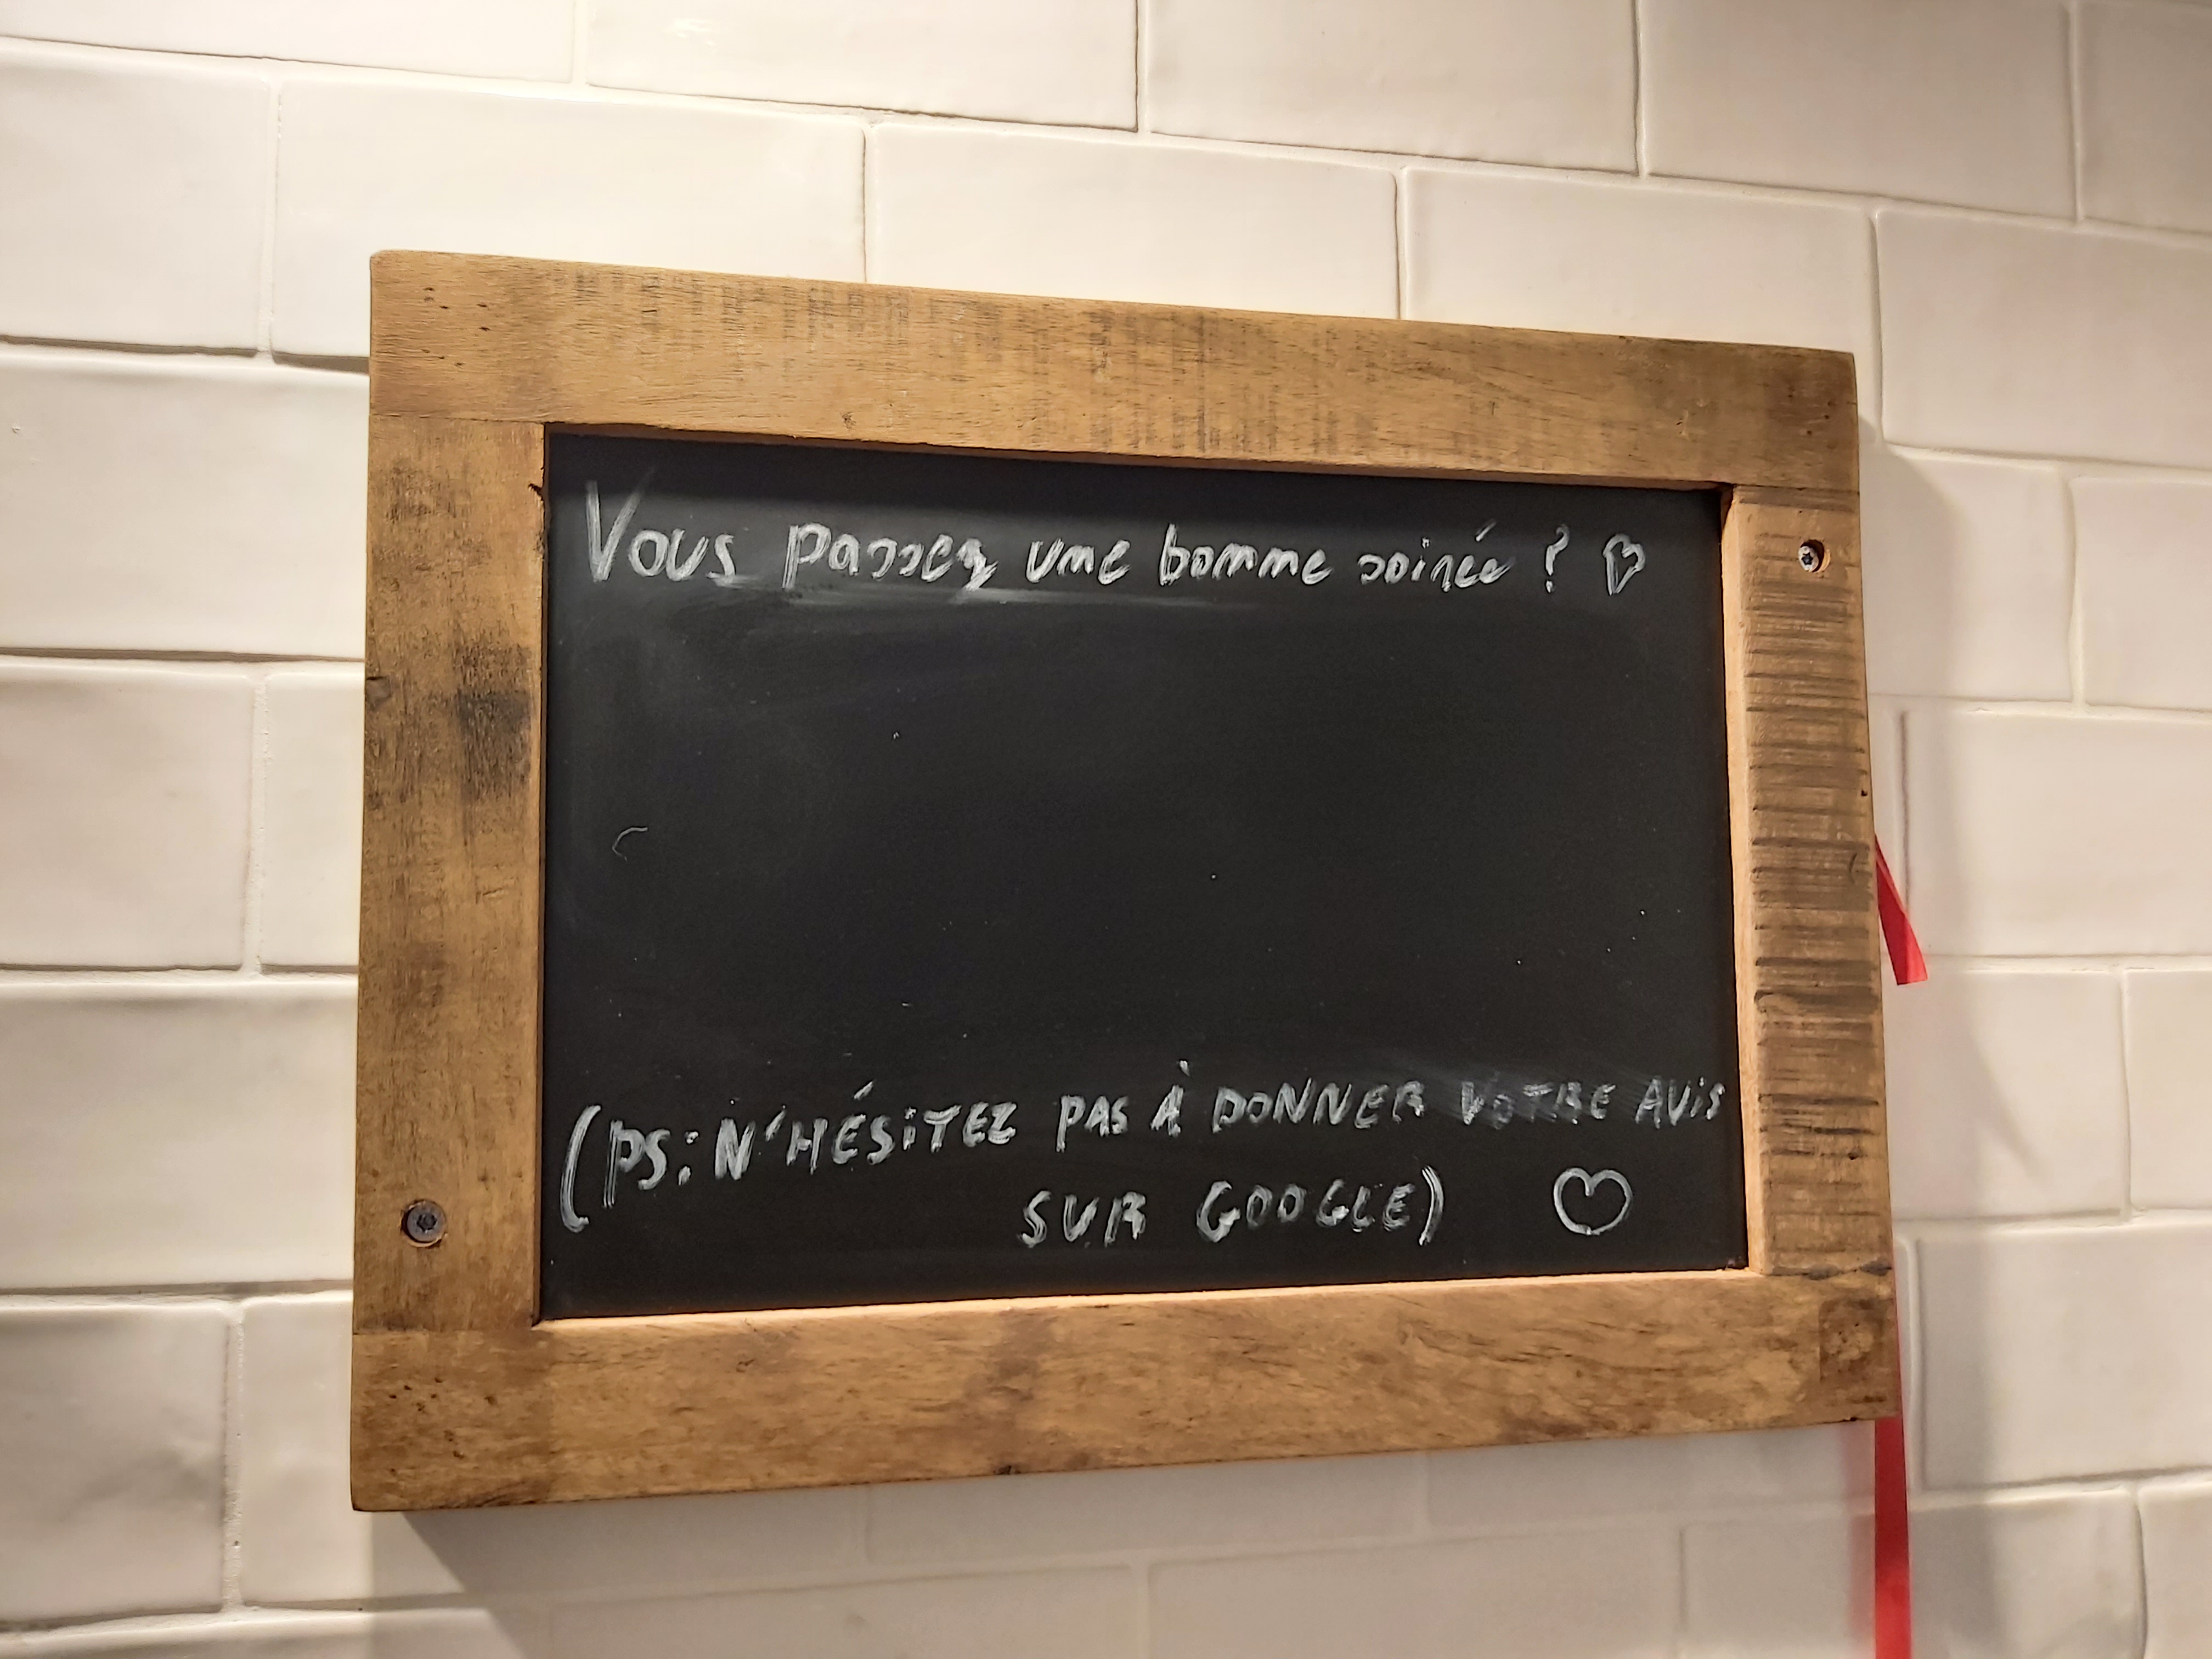 Vous passez une bonne soirée ? ♡
(PS: N'HÉSITEZ PAS À DONNER VOTRE AVIS
SUR GOOGLE) ♡